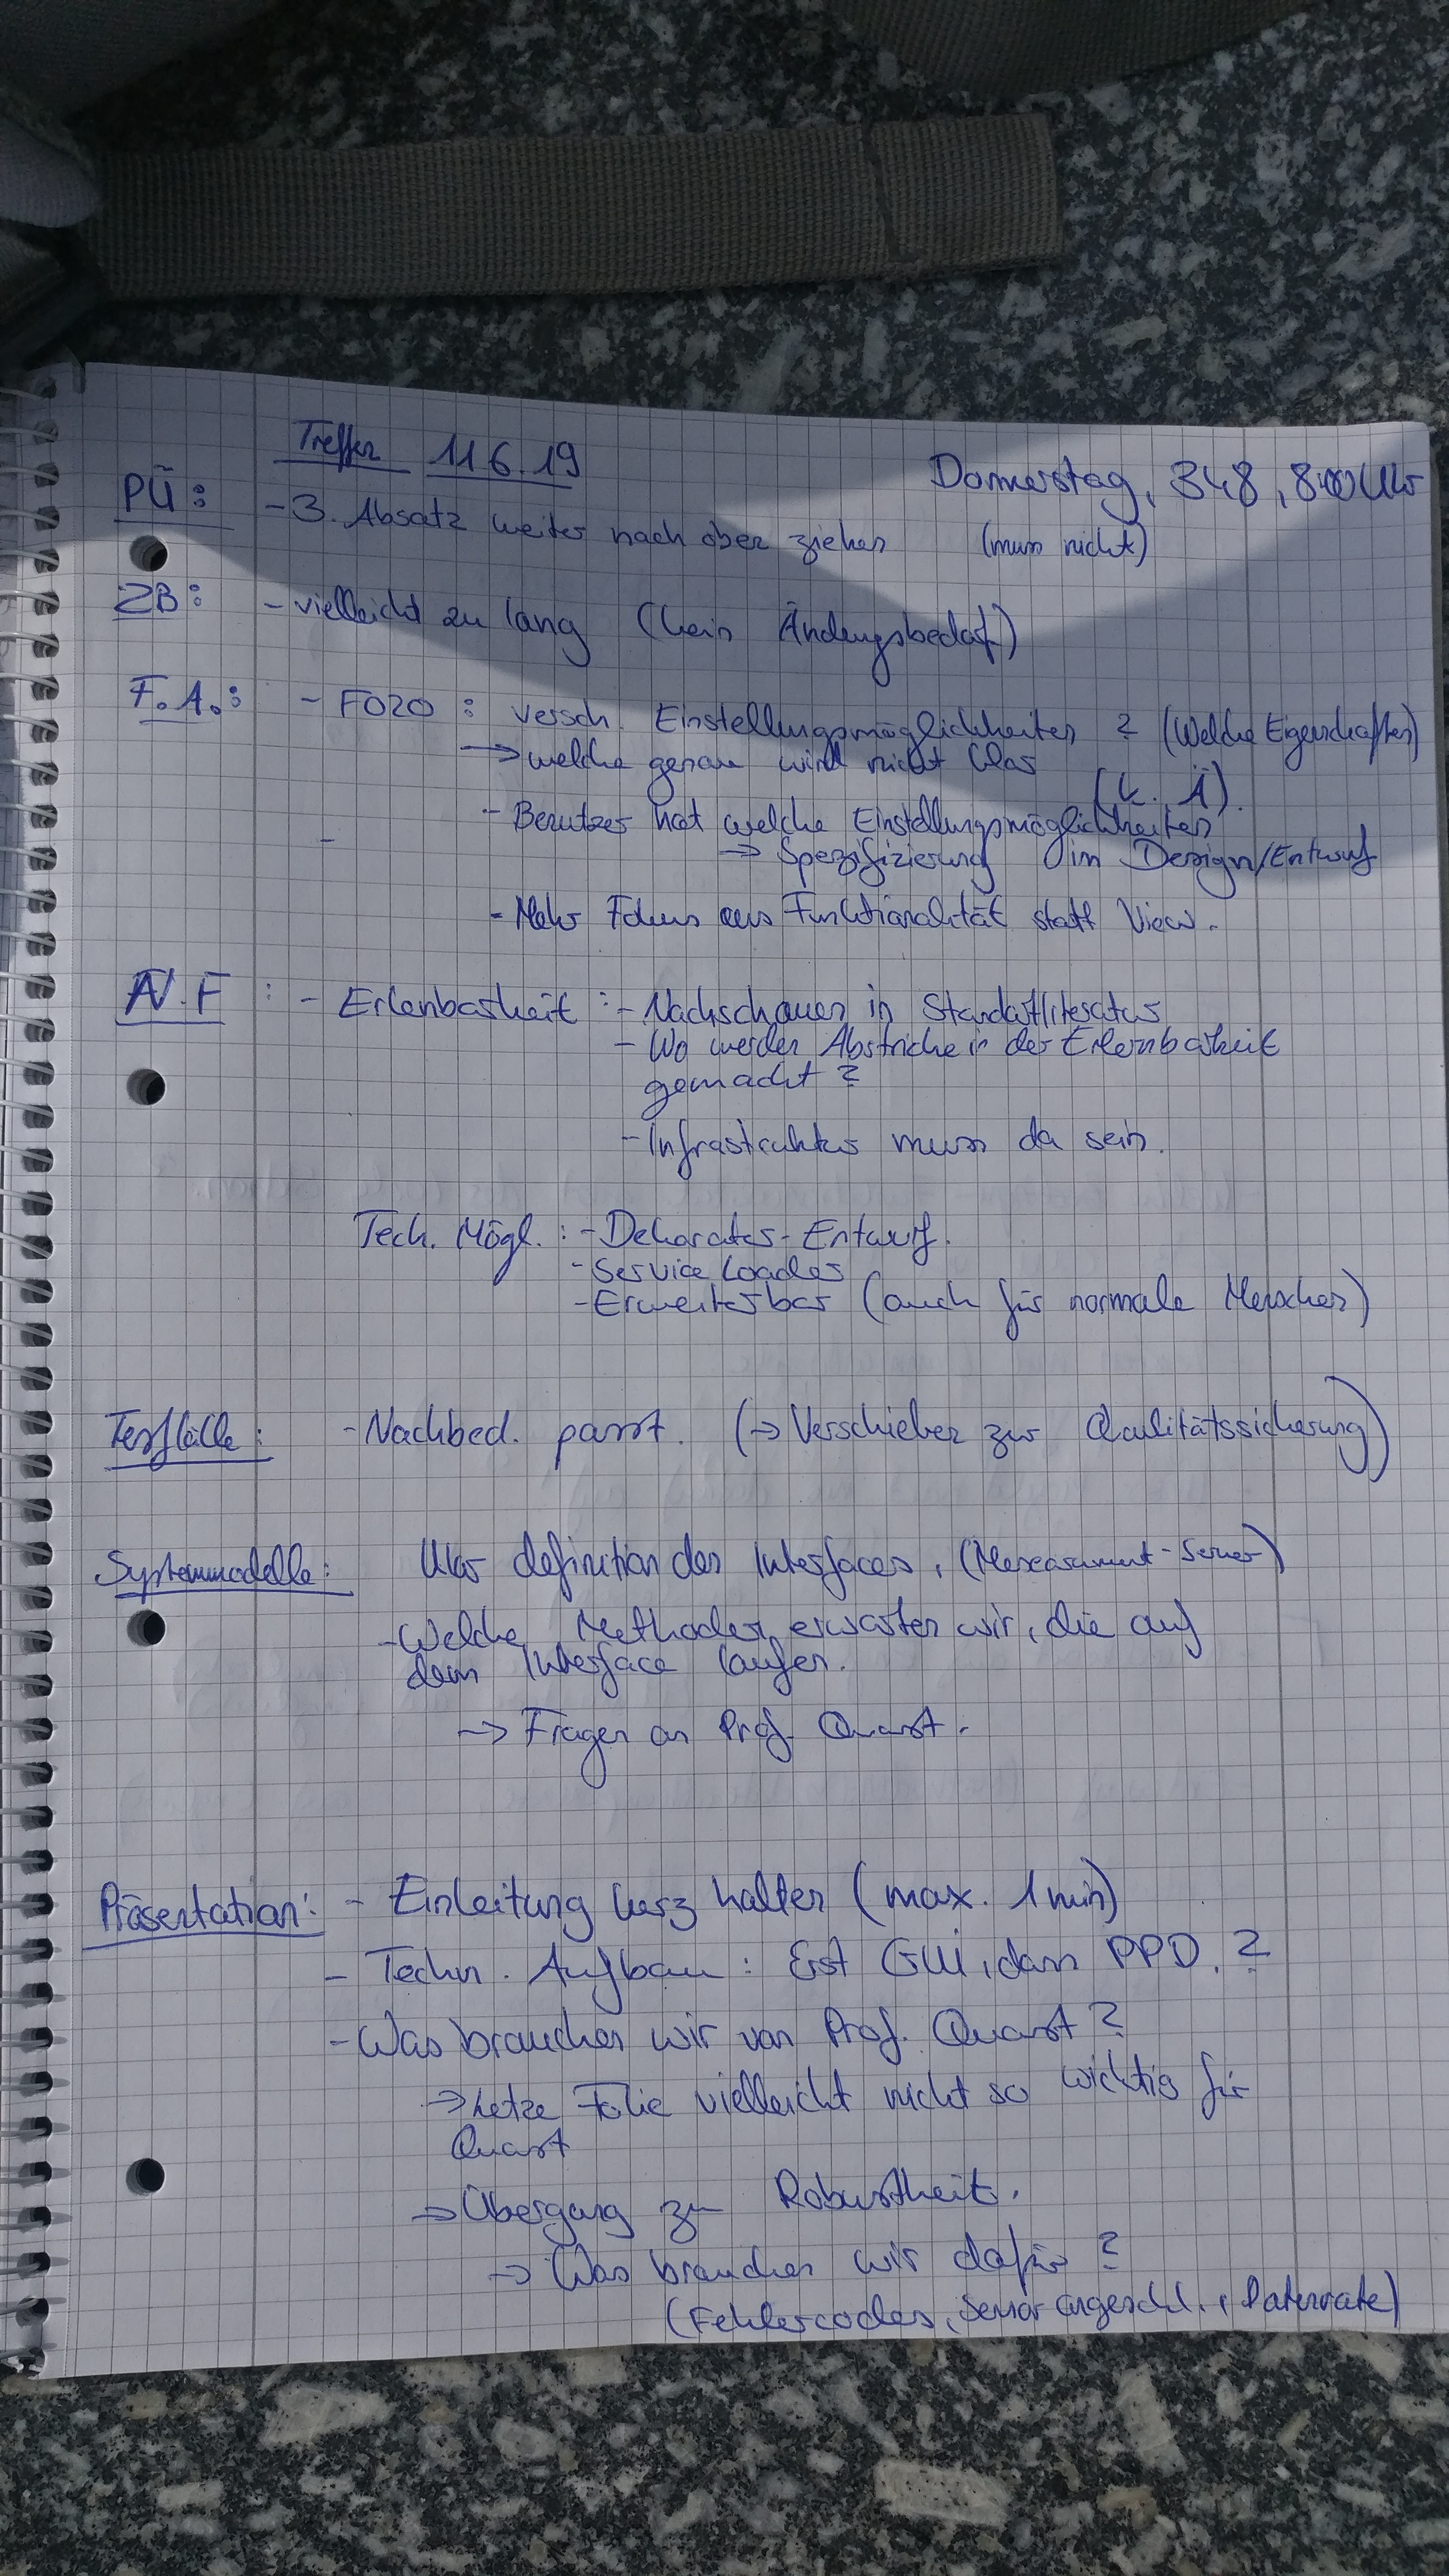 Treffen 11.6.19
Donnerstag, 348, 8:00 Uhr
PÜ: - 3. Absatz weiter nach oben ziehen (muss nicht)
ZB: - vielleicht zu lang (kein Änderungsbedarf)
F.A.: - F020 : versch. Einstellungsmöglichkeiten ? (Welche Eigenschaften)
→ welche genau wird nicht klar
(k. Ä).
- Benutzer hat welche Einstellungsmöglichkeiten
-
→ Spezifizierung im Design/Entwurf
- Mehr Fokus aus Funktionalität statt View.
N.F : - Erlenbarkeit : - Nachschauen in Standartliteratur
- Wo werden Abstriche in der Erlernbarkeit
gemacht ?
- Infrastruktur muss da sein.
Tech. Mögl. : - Dekorator-Entwurf.
- Service Loader
- Erweiterbar (auch für normale Menschen)
Testfälle: - Nachbed. passt. (→ Verschieben zur Qualitätssicherung)
Systemmodelle: Klar definition des Interfaces, (Measurement-Server)
- Welche Methoden erwarten wir, die auf
dem Interface laufen.
→ Fragen an Prof. Quast.
Präsentation: - Einleitung kurz halten (max. 1 min)
- Techn. Aufbau : Erst GUI, dann PPD. ?
- Was brauchen wir von Prof. Quast ?
→ Letze Folie vielleicht nicht so wichtig für
Quast
→ Übergang zu Robustheit.
→ Was brauchen wir dafür ?
(Fehlercodes, Sensor angeschl., Datenrate)